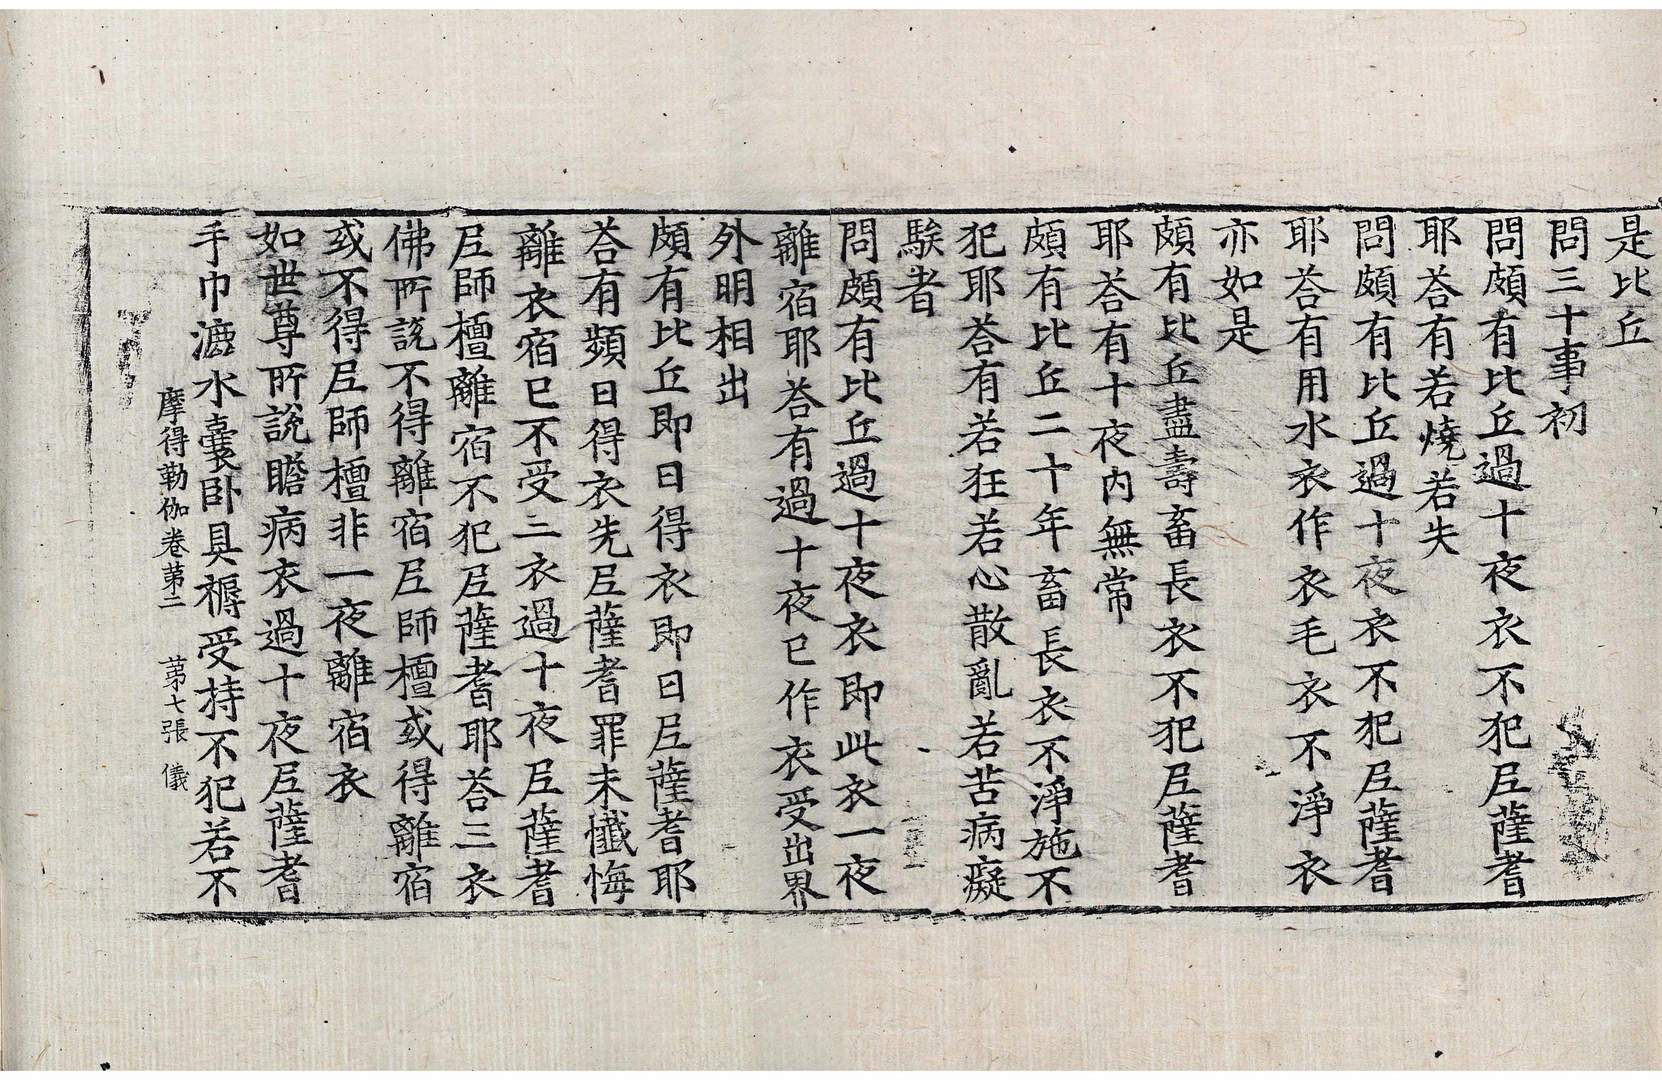 是比丘
問三十事初
問頗有比丘過十夜衣不犯尼薩耆
耶荅有若燒若失
問頗有比丘過十夜衣不犯尼薩耆
耶荅有用水衣作衣毛衣不淨衣
亦如是
頗有比丘盡壽畜長衣不犯尼薩耆
耶荅有十夜內無常
頗有比丘二十年畜長衣不淨施不
犯耶荅有若狂若心散亂若苦病癡
騃者
問頗有比丘過十夜衣即此衣一夜
離宿耶荅有過十夜已作衣受出界
外明相出
頗有比丘即日得衣即日尼薩耆耶
荅有頻日得衣先尼薩耆罪未懺悔
離衣宿已不受三衣過十夜尼薩耆
尼師檀離宿不犯尼薩耆耶荅三衣
佛所說不得離宿尼師檀或得離宿
或不得尼師檀非一夜離宿衣
如世尊所說瞻病衣過十夜尼薩耆
手巾漉水囊卧具褥受持不犯若不
摩得勒伽卷苐二 苐七張 儀